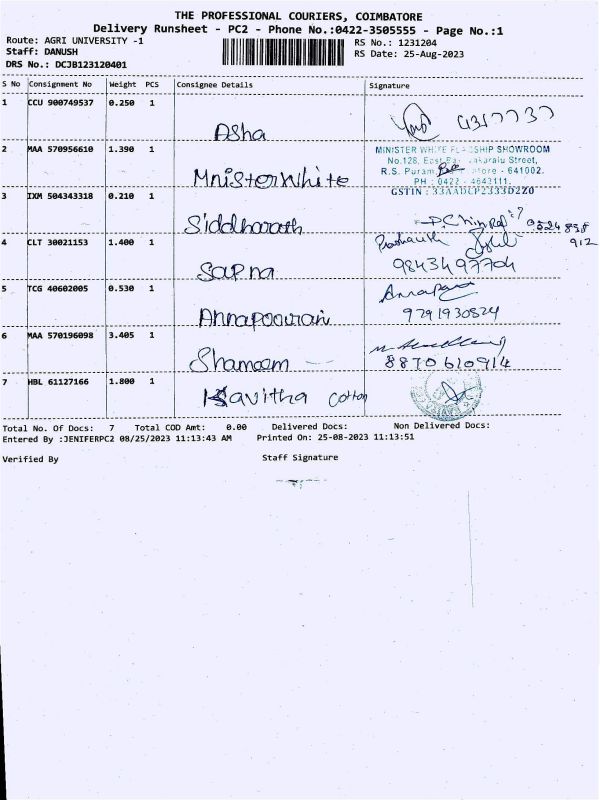 THE PROFESSIONAL COURIERS, COIMBATORE
Delivery Runsheet - PC2 - Phone No.:0422-3505555 - Page No.:1
Route: AGRI UNIVERSITY -1
RS No.: 1231204
Staff: DANUSH
RS Date: 25-Aug-2023
DRS No.: DCJB123120401
S No Consignment No Weight PCS Consignee Details Signature
1 CCU 900749537 0.250 1
Asha
2 MAA 570956610 1.390 1
MINISTER WHITE FLAGSHIP SHOWROOM
No.128, East
Street,
R.S. Puram, - 641002.
PH : 0422 - 4642111.
GSTIN : 33AADCP2333D2Z0
MnisterWhite
3 IXM 504343318 0.210 1
Siddharath
4 CLT 30021153 1.400 1
Prashanth
912
9843497704
Sapna
5 TCG 40602005 0.530 1
9791930824
Annapoorani
6 MAA 570196098 3.405 1
Shameem
8870610914
7 HBL 61127166 1.800 1
Kavitha cotton
Total No. Of Docs: 7 Total COD Amt: 0.00 Delivered Docs: Non Delivered Docs:
Entered By :JENIFERPC2 08/25/2023 11:13:43 AM Printed On: 25-08-2023 11:13:51
Verified By Staff Signature